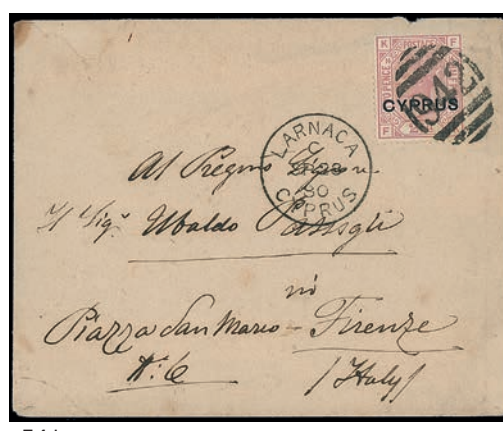 K POSTAGE F
CYPRUS
942
F K
LARNACA
C
AP 23
80
CYPRUS
Al Pregmo Signor
Il Sigr Ubaldo
in
Piazza San Marco - Firenze
No: 6 / Italy /